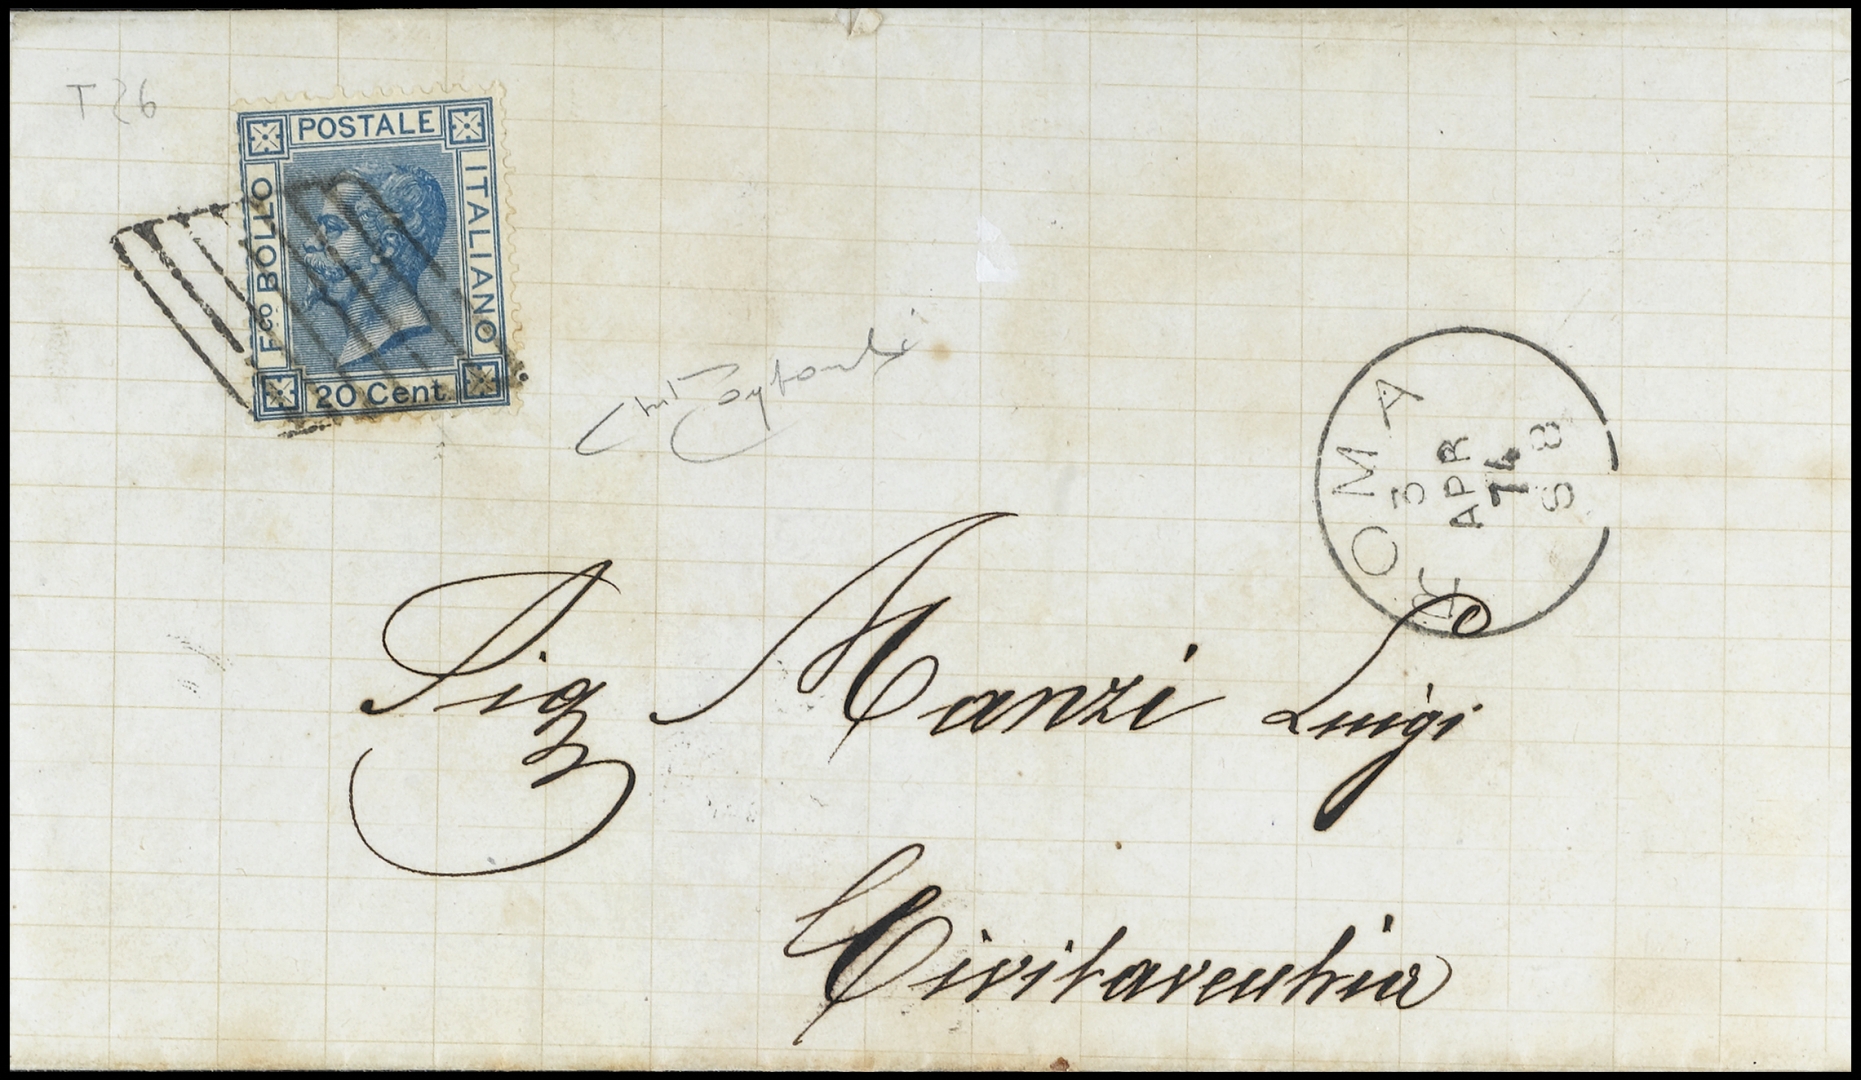 T 26
POSTALE
Fco BOLLO
ITALIANO
20 Cent.
ROMA
3
APR
74
8 S
Sig Manzi Luigi
Civitavecchia